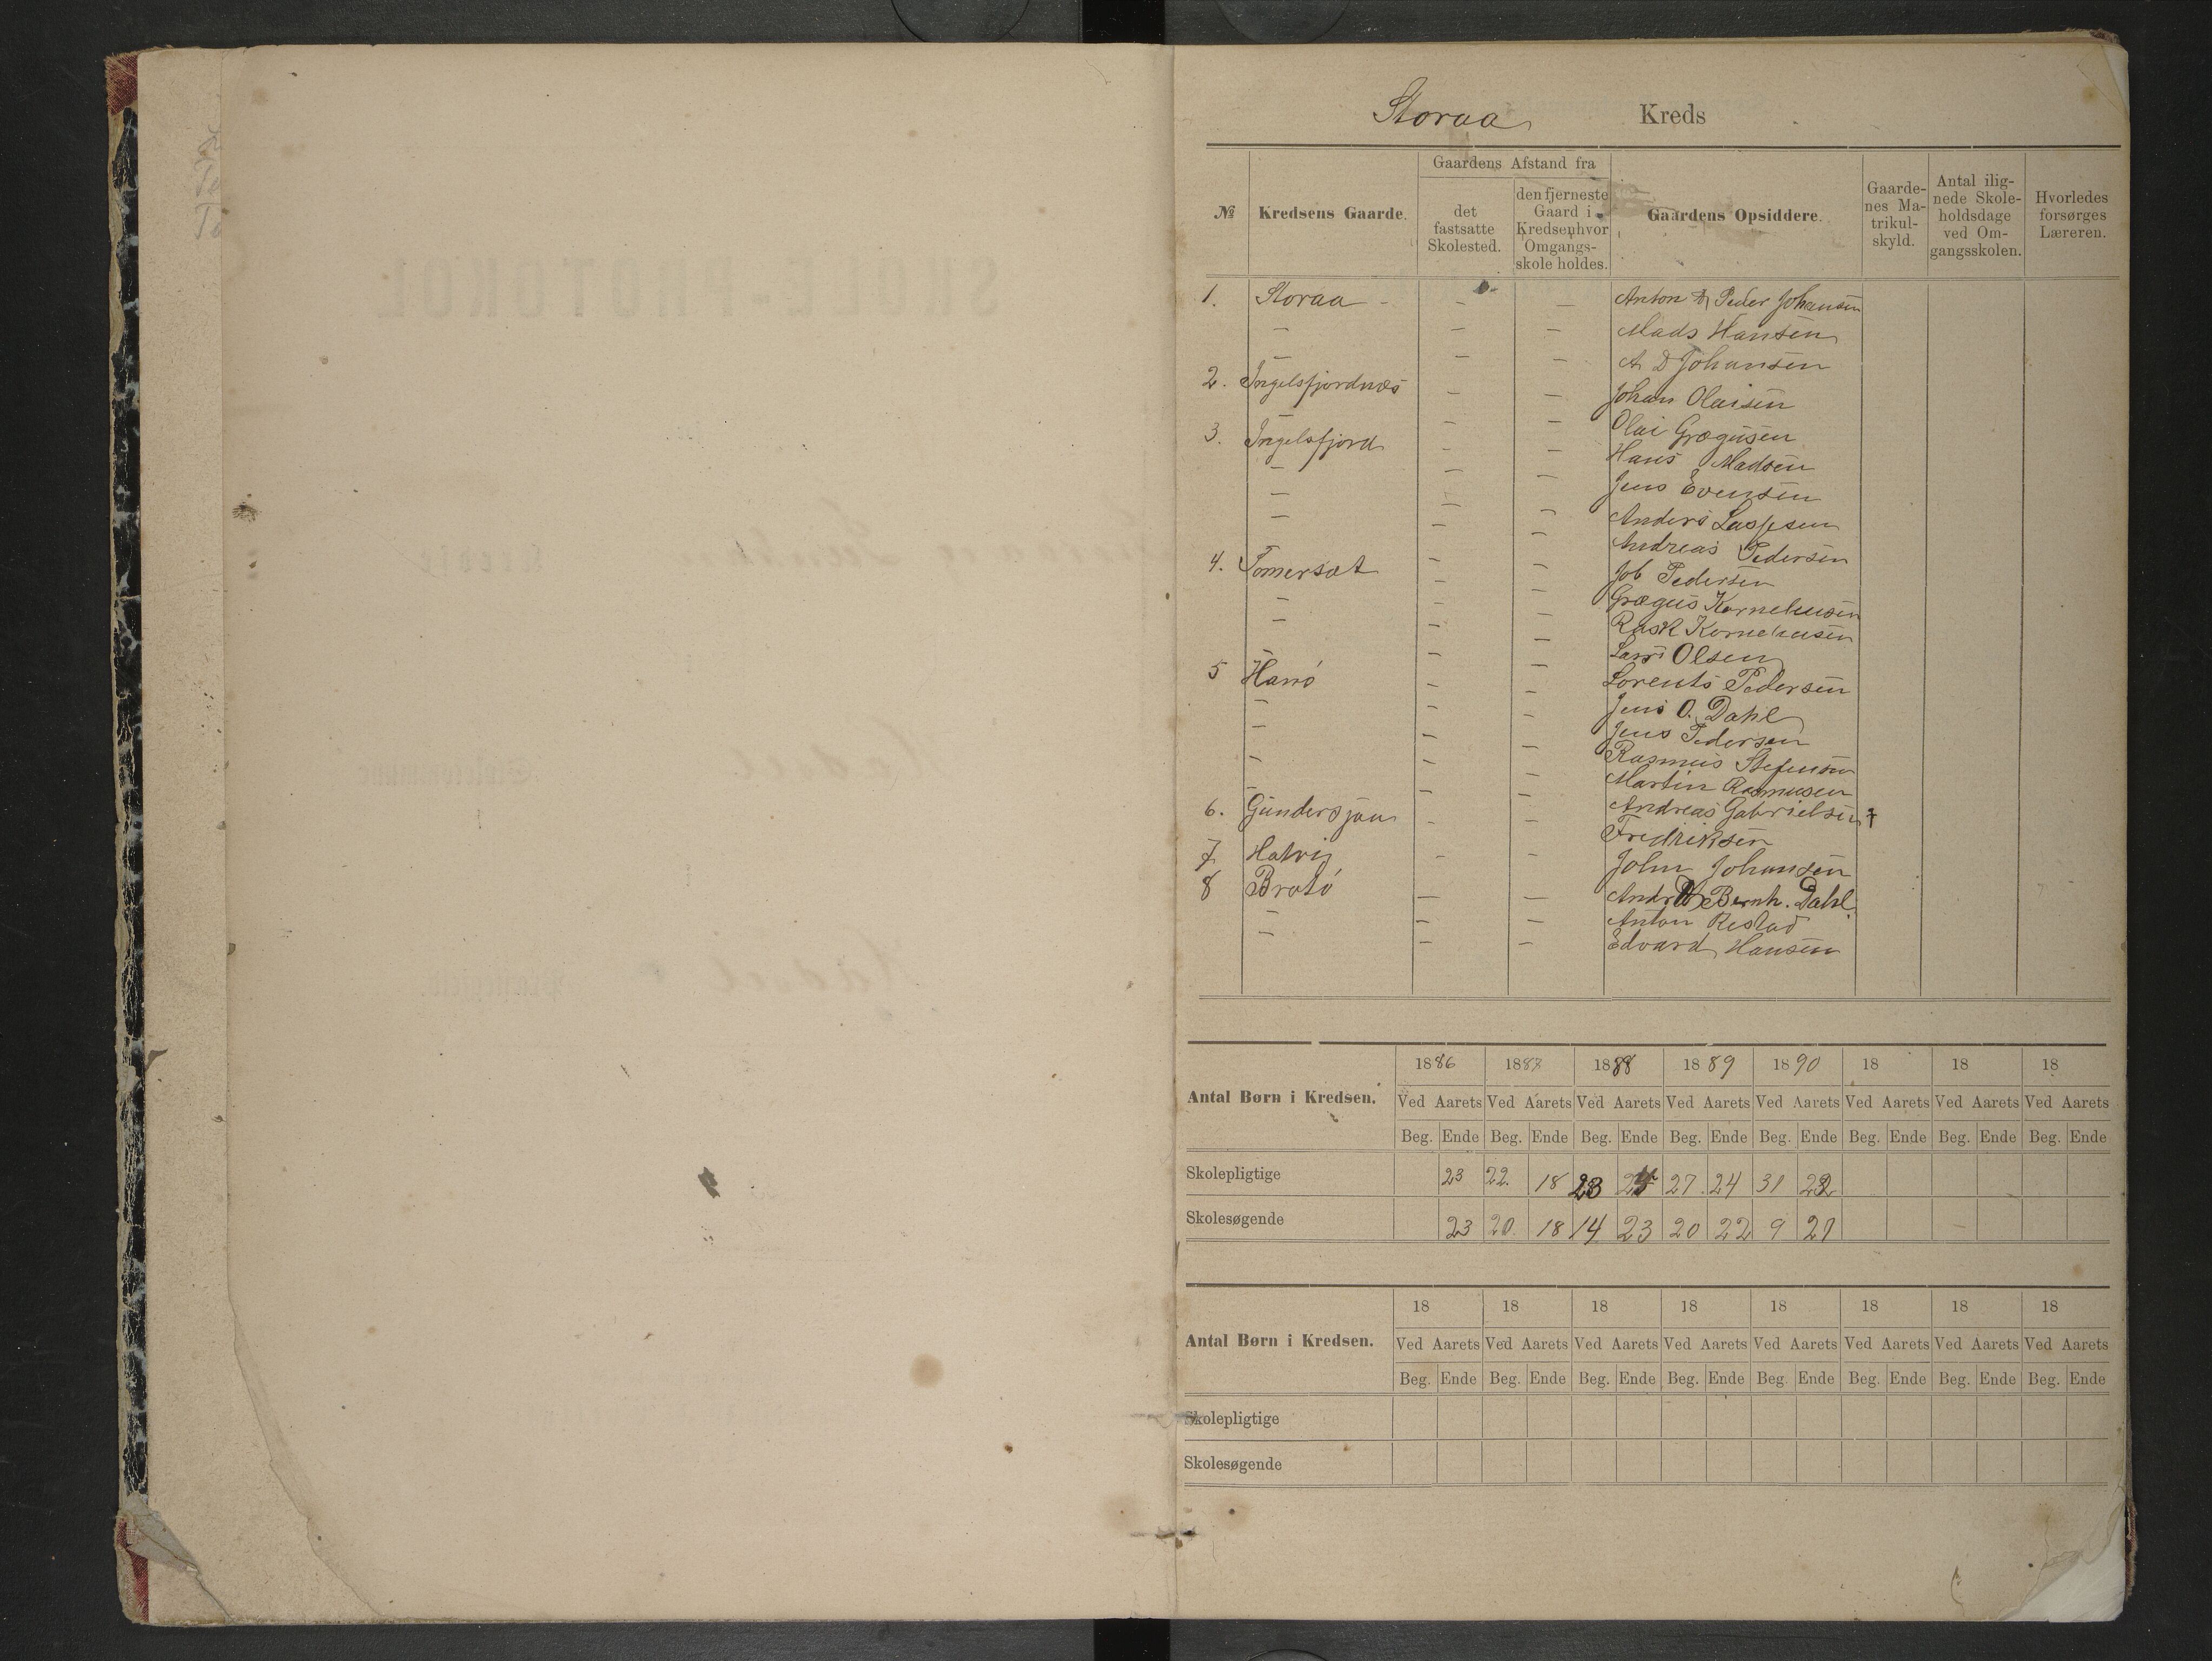 Storaa Kreds
№ Kredsens Gaarde. Gaardens Afstand fra det fastsatte Skolested. den fjerneste Gaard i Kredsen hvor Omgangsskole holdes. Gaardens Opsiddere. Gaardenes Matrikulskyld. Antal ilignede Skoleholdsdage ved Omgangsskolen. Hvorledes forsørges Læreren.
1. Storaa - - - Anton Peder Johansen
- - - Mads Hansen
- - - A D Johansen
2. Ingelsfjordnæs - - Johan Olaisen
- - - Olai Grægusen
3. Ingelsfjord - - Hans Madsen
- - - Jens Evensen
- - - Anders
- - - Andreas Pedersen
4. Tomersæt - - Job Pedersen
- - - Grægus Korneliusen
- - - Rask Korneliusen
- - - Lars Olsen
5 Hanø - - Lorents Pedersen
- - - Jens O. Dahl
- - - Jens Pedersen
- - - Rasmus Stefensen
- - - Martin Rasmusen
6. Gundersjau - - Andreas Gabrielsen
Fredriksen
7 Hatvig - - John Johansen
8 Brotø - - Bernh. Dahl.
- - - Anton Restad
- - - Edvard Hansen
Antal Børn i Kredsen. 1886 1887 1888 1889 1890 18 18 18
Ved Aarets Ved Aarets Ved Aarets Ved Aarets Ved Aarets Ved Aarets Ved Aarets Ved Aarets
Beg. Ende Beg. Ende Beg. Ende Beg. Ende Beg. Ende Beg. Ende Beg. Ende Beg. Ende
Skolepligtige 23 22. 18 23 27 24 31
Skolesøgende 23 20. 18 14 23 20 22 9 21
Antal Børn i Kredsen. 18 18 18 18 18 18 18 18
Ved Aarets Ved Aarets Ved Aarets Ved Aarets Ved Aarets Ved Aarets Ved Aarets Ved Aarets
Beg. Ende Beg. Ende Beg. Ende Beg. Ende Beg. Ende Beg. Ende Beg. Ende Beg. Ende
Skolepligtige
Skolesøgende